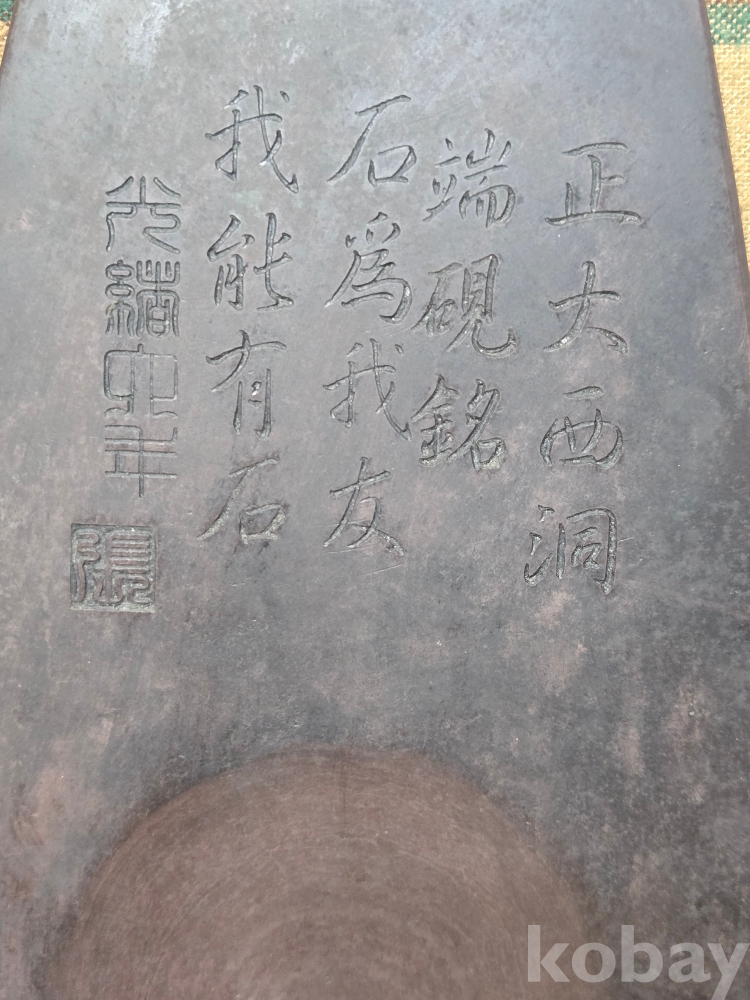 正大西洞
端硯銘
石爲我友
我能有石
光緒六年
張
kobay